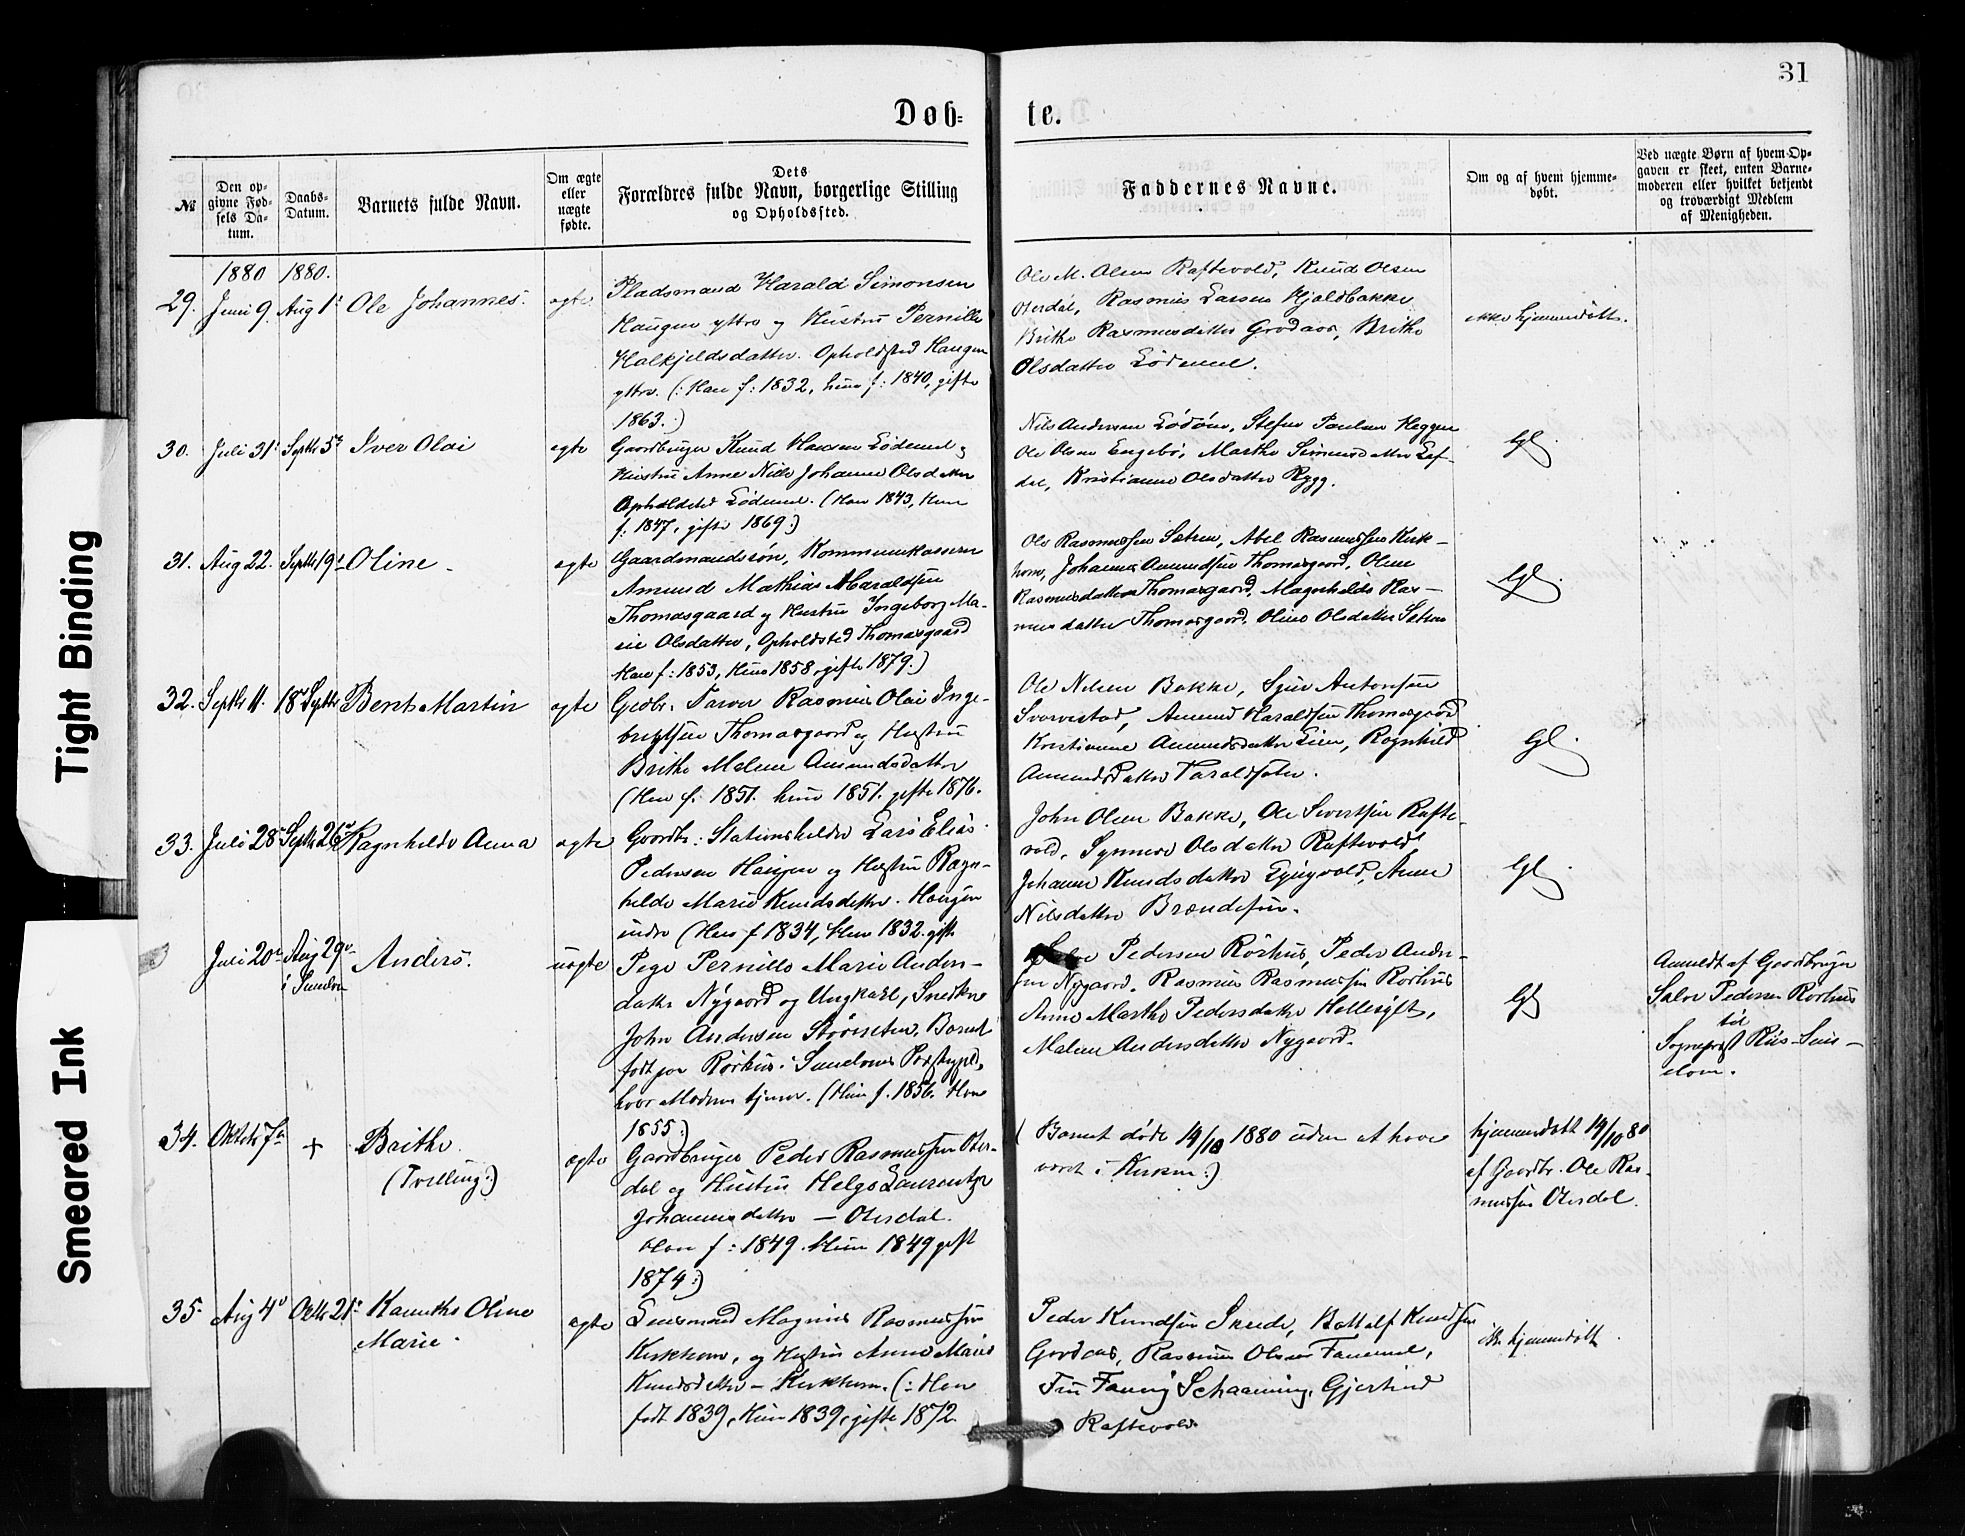 31
Døb-
te.
№
Den op-
givne Fød-
sels Da-
tum.
Daabs-
Datum.
Barnets fulde Navn.
Om ægte
eller
uægte
fødte.
Dets
Forældres fulde Navn, borgerlige Stilling
og Opholdssted.
Faddernes Navne.
Om og af hvem hjemme-
døbt.
Ved uægte Børn af hvem Op-
gaven er skeet, enten Barne-
moderen eller hvilket bekjendt
og troværdigt Medlem
af Menigheden.
1880 1880.
29. Juni 9. Aug 1 Ole Johannes. ægte
Pladsmand Harald Simonsen
Haugen yttre og Hustru Pernille
Halkjeldsdatter. Opholdsted Haugen
yttre. (: Han f: 1832, hun f: 1840, gifte
1863.)
Ole M. Olsen Raftevold, Knud Olsen
Oterdal, Rasmus Larsen Hjoldbakke
Brithe Rasmusdatter Grodaas, Brithe
Olsdatter Lødemel.
ikke hjemmedøbt.
30. Juli 31 Septbr 5 Iver Olai ægte
Gaardbruger Knud Hansen Lødemel og
Hustru Anne Nille Johanne Olsdatter
Opholdsted Lødemel. (Han 1843, Hun
f. 1847, gifte 1869:)
Nils Andersen Lødøen, Stefen Paulsen Heggen
Ole Olsen Engebø, Marthe Simensdatter Lef-
dal, Kristianne Olsdatter Rygg.
Gl.
31. Aug 22. Septbr 19 Oline ægte
Gaardmandssøn, Kommunekasserer
Amund Mathias Haraldsen
Thomasgaard og Hustru Ingeborg Ma-
rie Olsdatter, Opholdsted Thomasgaard
Han f: 1853, Hun 1858, gifte 1879.)
Ole Rasmussen Sætren, Abel Rasmussen Kirk-
horn, Johannes Amundsen Thomasgaard, Oline
Rasmusdatter Thomasgaard, Magnhilde Ras-
musdatter Thomasgaard. Oline Olsdatter Sætren
Gl.
32. Septbr 11. 18 Septbr Bent Martin ægte
Grdbr. Farver Rasmus Olai Inge-
brigtsen Thomasgaard og Hustru
Brithe Malene Amundsdatter
(Han f. 1851. hun 1851. gifte 1876.
Ole Nilsen Bakke, Sjur Antonsen
Svorvestad, Amund Haraldsen Thomasgaard
Kristianne Amundsdatter Lien, Ragnhild
Amundsdatter Taraldsæter.
Gl.
33. Juli 28 Septbr 26 Ragnhilde Anna ægte
Gaardbr: Stationsholder Lars Elias
Pedersen Haugen og Hustru Ragn-
hilde Marie Knudsdatter. Haugen
indre (Han f 1834, Hun 1832. gift
John Olsen Bakke, Ole Sivertsen Rafte-
vold, Synneve Olsdatter Raftevold
Johanne Knudsdatter Ljugvold, Anne
Nilsdatter Brændefur.
Gl.
Juli 20 Aug 29
i Sunelven
Anders. uægte
Pige Pernille Marie Anders-
datter Nygaard og Ungkarl, Snedker
John Andersen Størseten. Barnet
født paa Rørhus i Sunelvens Præstegjeld,
hvor Moderen tjener. (Hun f. 1856. Han
1855:)
Salve Pedersen Rørhus, Peder Ander-
sen Nygaard. Rasmus Rasmussen Rørhus
Anne Marthe Pedersdatter Hellesylt,
Malene Andersdatter Nygaard.
Gl
Anmeldt af Gaardbruger
Salve Pedersen Rørhus
til
Sognepræst Riis-Sun-
elven.
34. Oktob 7 + Brithe
(Tvilling:)
ægte
Gaardbruger Peder Rasmussen Oter-
dal og Hustru Helge Laurentze
Johannesdatter — Oterdal.
Han f: 1849. Hun 1849 gift
1874:)
( Barnet døde 14/10 1880 uden at have
været i Kirken:)
hjemmedøbt 14/10 80
af Gaardbr. Ole Ras-
mussen Oterdal.
35. Aug 4 Octbr 21 Oline
Marie.
ægte
Lensmand Magnus Rasmussen
Kirkhorn, og Hustru Anne Marie
Knudsdatter — Kirkhorn. (: Han
født 1839, Hun 1839, gifte 1872
Peder Knudsen Skrede, Bottolf Knudsen
Grodaas, Rasmus Olsen Fannemel,
Fru Fanny Schaanning, Gjertrud
Raftevold
ikke hjemmedøbt.
Tight Binding
Smeared Ink